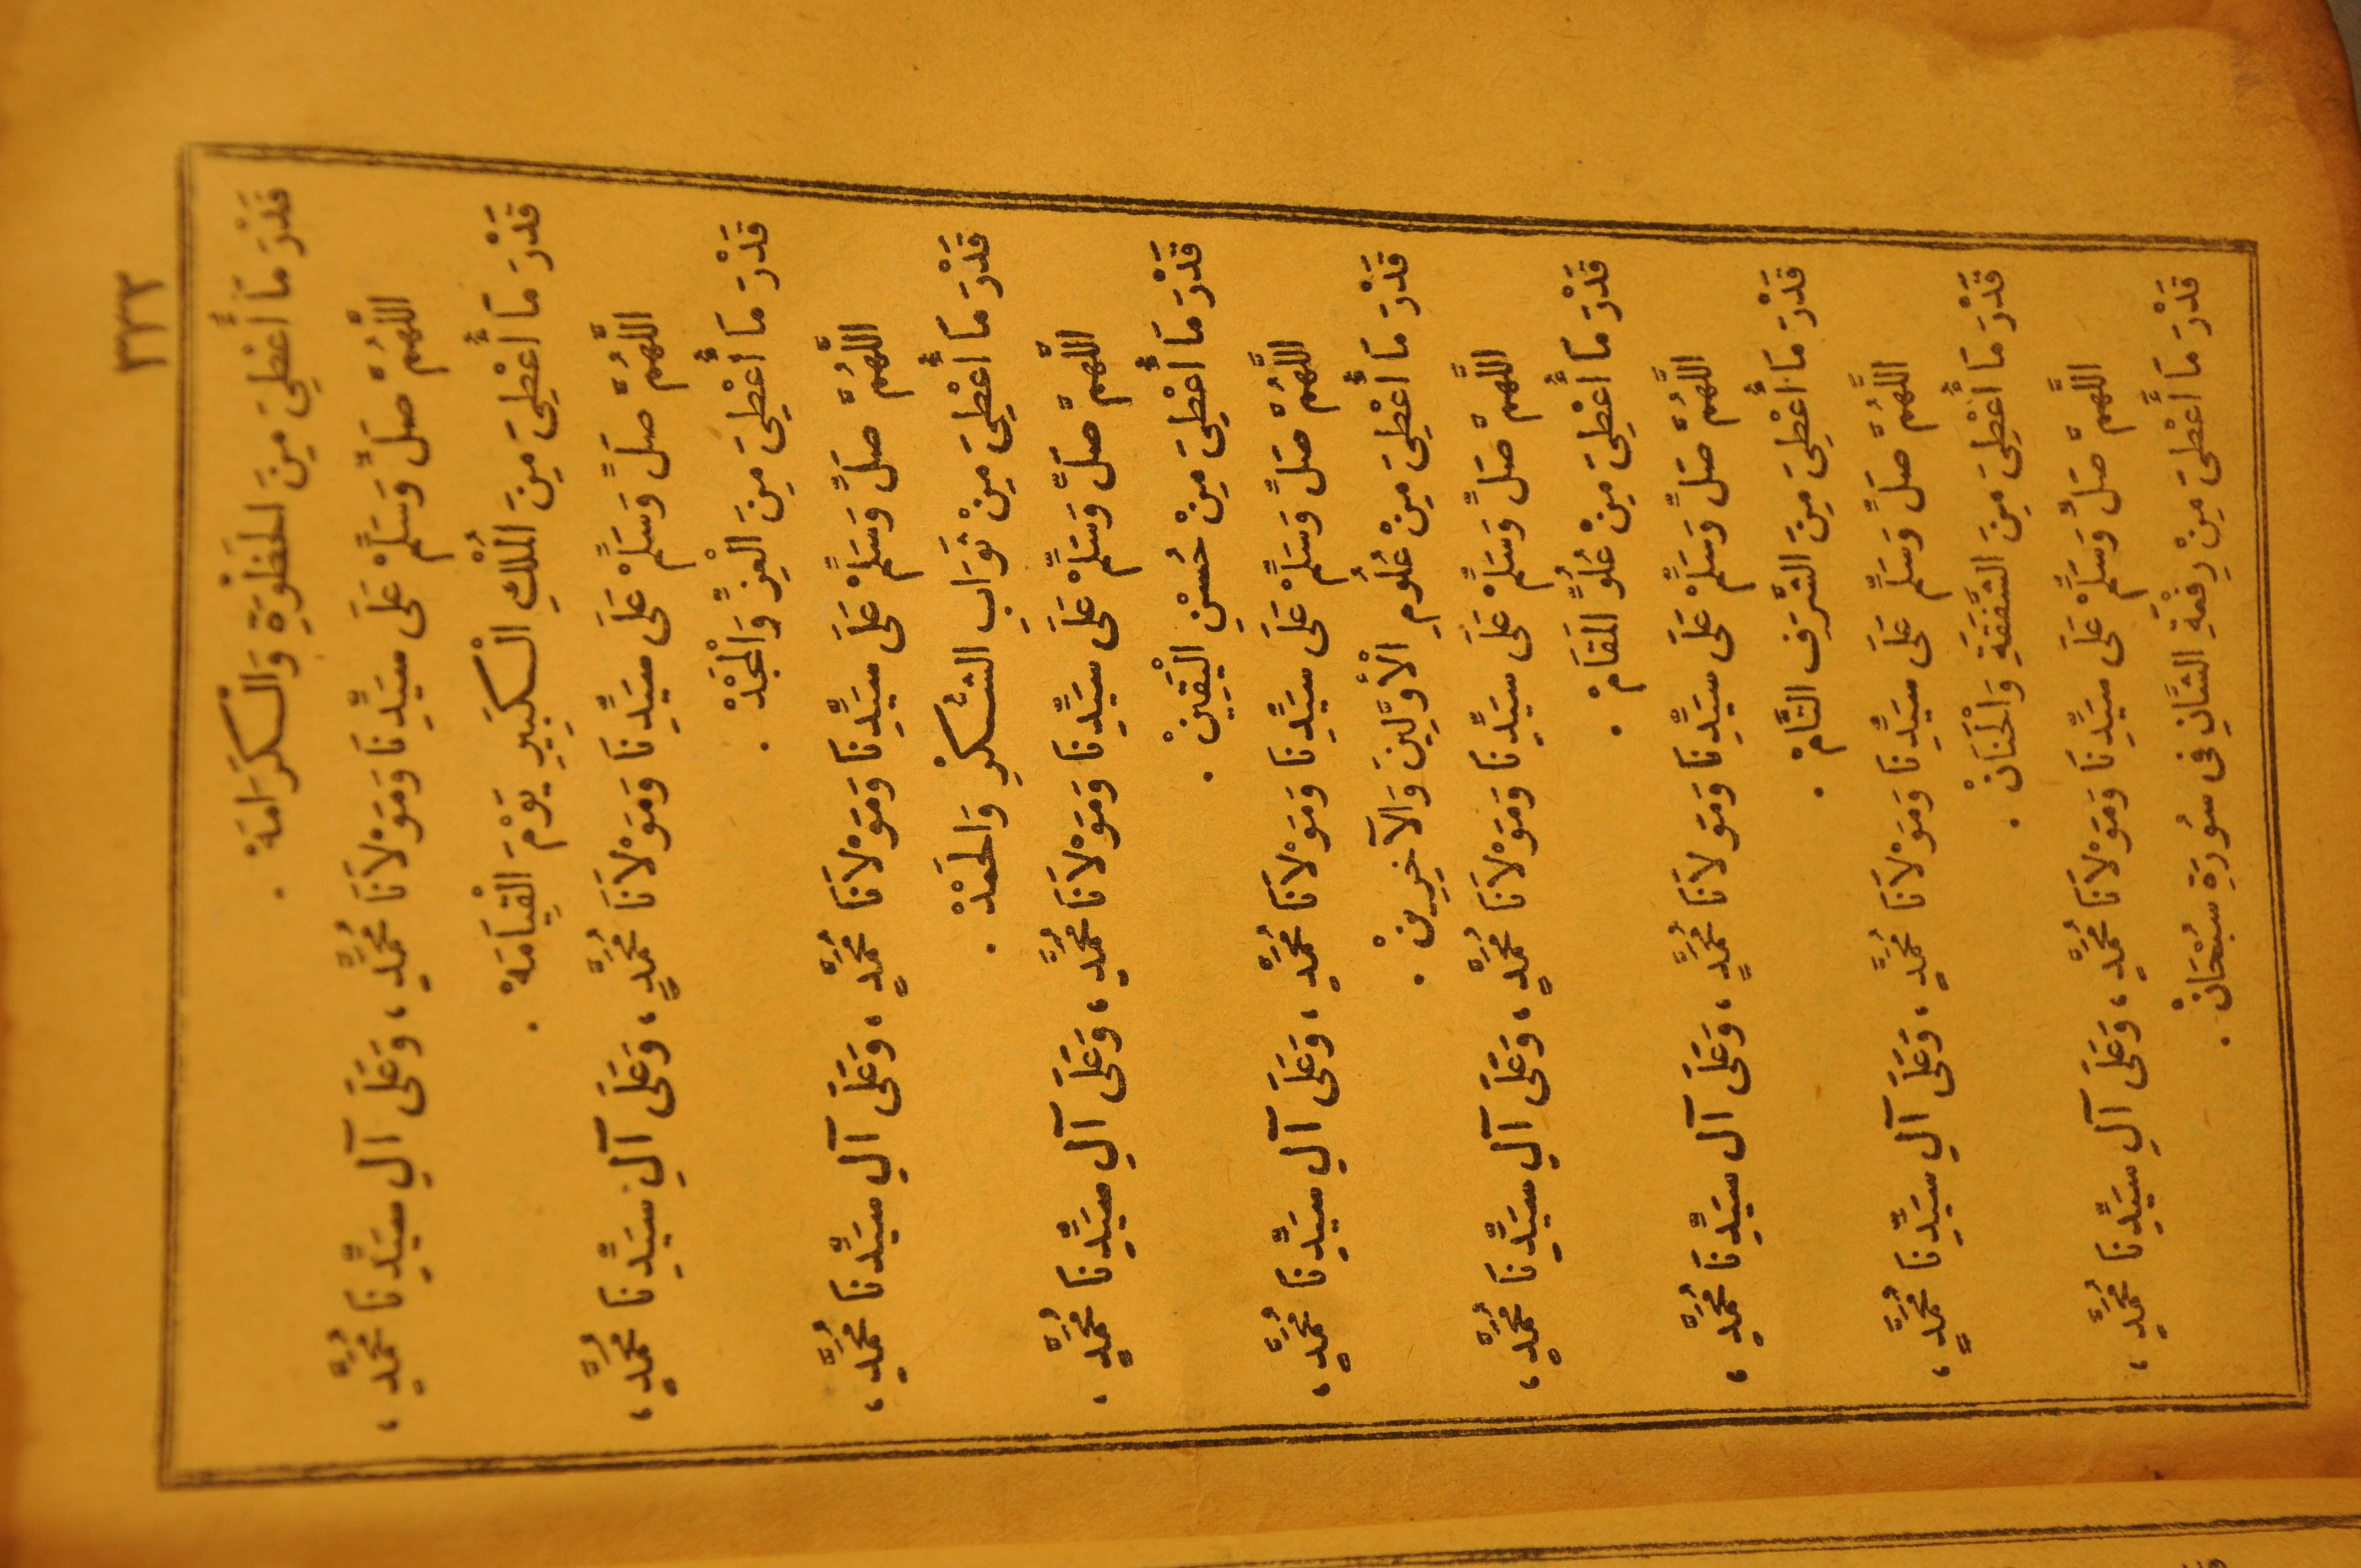 ٣٣٢
قَدْرَ مَا أُعْطِيَ مِنَ الْحَظْوَةِ وَالْكَرَامَةْ .
اللَّهُمَّ صَلِّ وَسَلِّمْ عَلَى سَيِّدِنَا وَمَوْلَانَا مُحَمَّدٍ ، وَعَلَى آلِ سَيِّدِنَا مُحَمَّدٍ ،
قَدْرَ مَا أُعْطِيَ مِنَ الْمُلْكِ الْكَبِيرِ يَوْمَ الْقِيَامَةْ .
اللَّهُمَّ صَلِّ وَسَلِّمْ عَلَى سَيِّدِنَا وَمَوْلَانَا مُحَمَّدٍ ، وَعَلَى آلِ سَيِّدِنَا مُحَمَّدٍ ،
قَدْرَ مَا أُعْطِيَ مِنَ الْعِزِّ وَالْمَجْدْ .
اللَّهُمَّ صَلِّ وَسَلِّمْ عَلَى سَيِّدِنَا وَمَوْلَانَا مُحَمَّدٍ ، وَعَلَى آلِ سَيِّدِنَا مُحَمَّدٍ ،
قَدْرَ مَا أُعْطِيَ مِنْ ثَوَابِ الشُّكْرِ وَالْحَمْدْ .
اللَّهُمَّ صَلِّ وَسَلِّمْ عَلَى سَيِّدِنَا وَمَوْلَانَا مُحَمَّدٍ ، وَعَلَى آلِ سَيِّدِنَا مُحَمَّدٍ ،
قَدْرَ مَا أُعْطِيَ مِنْ حُسْنِ الْيَقِينْ .
اللَّهُمَّ صَلِّ وَسَلِّمْ عَلَى سَيِّدِنَا وَمَوْلَانَا مُحَمَّدٍ ، وَعَلَى آلِ سَيِّدِنَا مُحَمَّدٍ ،
قَدْرَ مَا أُعْطِيَ مِنْ عُلُومِ الْأَوَّلِينَ وَالْآخِرِينْ .
اللَّهُمَّ صَلِّ وَسَلِّمْ عَلَى سَيِّدِنَا وَمَوْلَانَا مُحَمَّدٍ ، وَعَلَى آلِ سَيِّدِنَا مُحَمَّدٍ ،
قَدْرَ مَا أُعْطِيَ مِنْ عُلُوِّ الْمَقَامْ .
اللَّهُمَّ صَلِّ وَسَلِّمْ عَلَى سَيِّدِنَا وَمَوْلَانَا مُحَمَّدٍ ، وَعَلَى آلِ سَيِّدِنَا مُحَمَّدٍ ،
قَدْرَ مَا أُعْطِيَ مِنَ الشَّرَفِ التَّامْ .
اللَّهُمَّ صَلِّ وَسَلِّمْ عَلَى سَيِّدِنَا وَمَوْلَانَا مُحَمَّدٍ ، وَعَلَى آلِ سَيِّدِنَا مُحَمَّدٍ ،
قَدْرَ مَا أُعْطِيَ مِنَ الشَّفَقَةِ وَالْحَنَانْ .
اللَّهُمَّ صَلِّ وَسَلِّمْ عَلَى سَيِّدِنَا وَمَوْلَانَا مُحَمَّدٍ ، وَعَلَى آلِ سَيِّدِنَا مُحَمَّدٍ ،
قَدْرَ مَا أُعْطِيَ مِنْ رِفْعَةِ الشَّانِ فِى سُورَةِ سُبْحَانْ .